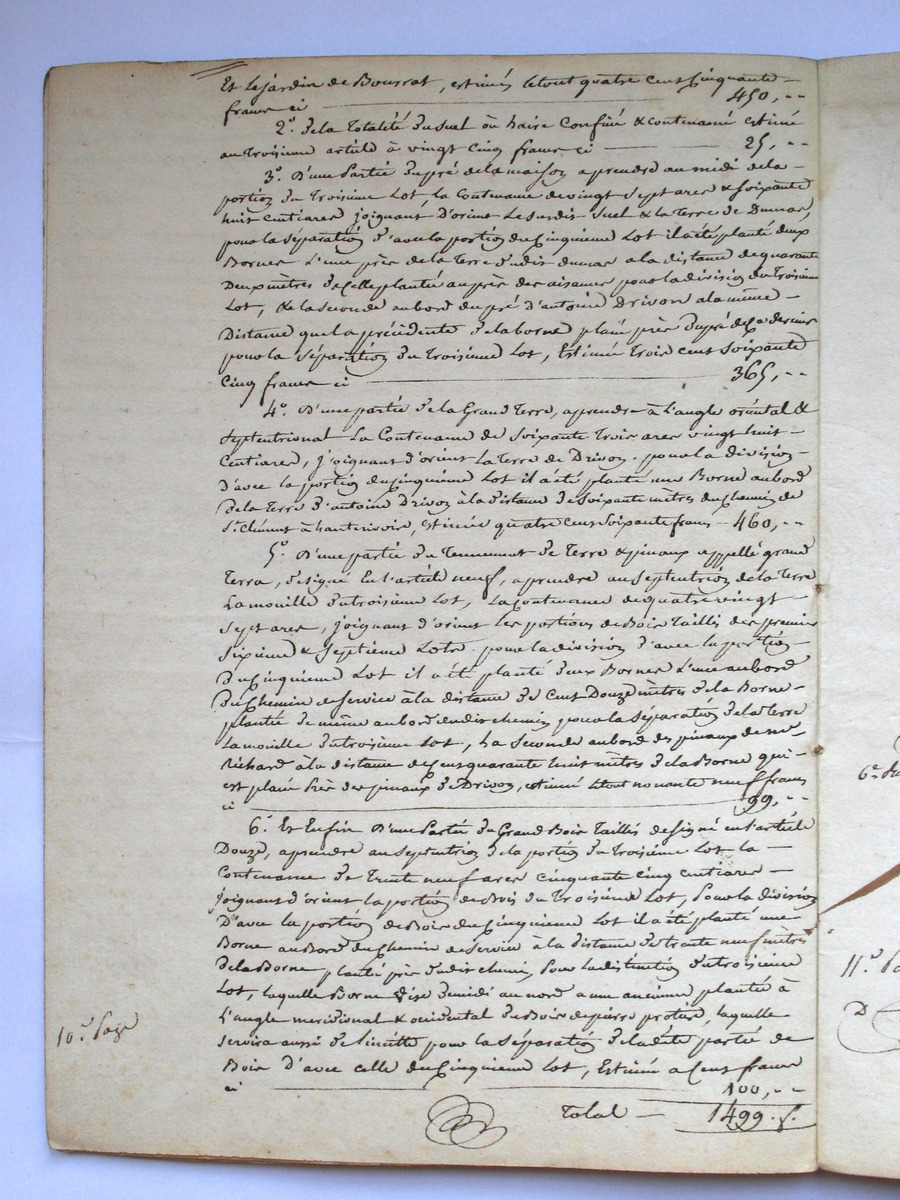 Et le jardin de Boussat, estimés le tout quatre cent cinquante
francs ci 450,--
2° De la totalité du suel ou haire confiné & contenancé estimé
au troisième article à vingt cinq francs ci 25,--
3° D'une Partie du pré de la maison a prendre au midi de la
portion du troisième Lot, la Contenance de vingt sept ares & soixante
huit centiares joignant d'orient Le susdit suel & la terre de Dumas,
pour la séparation d'avec la portion du Cinquième Lot il a été planté deux
Bornes L'une près de la terre dudit dumas a la distance de quarante
Deux mètres de celle planté auprès des aisances pour la division du troisième
Lot, & la seconde au bord du pré d'antoine Drivon a la même
Distance que la précédente de la borne près du pré de ce dernier
pour la séparation du troisième Lot, Estimée Trois cent soixante
Cinq francs ci 365,--
4° D'une partie de la Grand Terre, a prendre à L'angle oriental &
septentrional La Contenance de soixante trois ares vingt huit
Centiares, joignant d'orient La terre de Drivon. pour la division
d'avec la portion du Cinquième Lot il a été planté une Borne au bord
De la terre d'antoine Drivon à la distance de soixante mètres du chemin de
St Clément à hauterivoire, estimée quatre cent soixante francs 460,--
5° D'une partie du Tennement de terre & pinaux appellé grand
Terra, désigné En L'article neuf, a prendre au septentrion de la terre
La mouille du troisième Lot, La contenance de quatre vingt
sept ares, joignant d'orient les portions de Bois Taillis des premier
sixième & septième Lots. pour la division d'avec la portion
du Cinquième Lot il a été planté deux Bornes L'une au bord
du Chemin de service à la distance de Cent Douze mètres de la Borne
plantée de même au bord dudit chemin pour la séparation de la terre
La mouille du troisième Lot, La seconde au bord des pinaux de
Richard à la distance de Cent quarante huit mètres de la Borne qui
est près des pinaux de Drivon, estimé le tout nonante neuf francs
ci 99,--
6° Et Enfin D'une Partie du Grand Bois Taillis designé en l'article
Douze, a prendre au septentrion de la portion du Troisième Lot la
Contenance de Trente neuf ares cinquante cinq centiares
joignant d'orient la portion de Bois du Troisième Lot, Pour la division
D'avec la portion de Bois du Cinquième Lot il a été planté une
Borne au Bord du Chemin de service à la distance de trente neuf mètres
de la Borne planté près dudit chemin, Pour la distinction du troisième
Lot, laquelle Borne vise du midi au nord a une ancienne plantée à
L'angle meridional & occidental du Bois de pierre protere, laquelle
servira aussi de limitte pour la séparation de la dite partie de
Bois d'avec celle du Cinquième Lot, Estimée a Cent francs
ci 100,--
Total — 1499. f.
10e Page